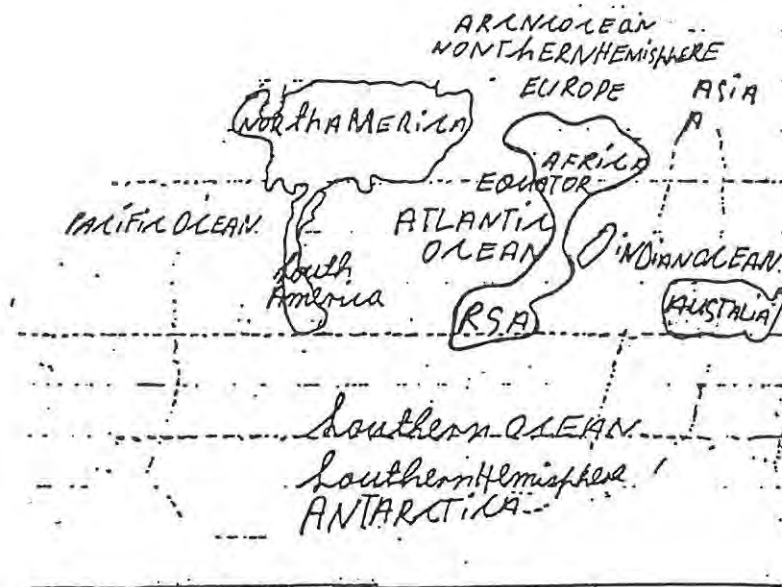 ARCNCOCEAN
NONThERNHEMisphERE
EUROPE
ASiA
A
NORThAMERiCA
AFRiCA
EQUATOR
PACiFiC OCEAN
ATLANTiC
OCEAN
iNDiANOCEAN
South
America
RSA
AUSTALiA
Southern OCEAN
SouthernHemisphera
ANTARCTiCA